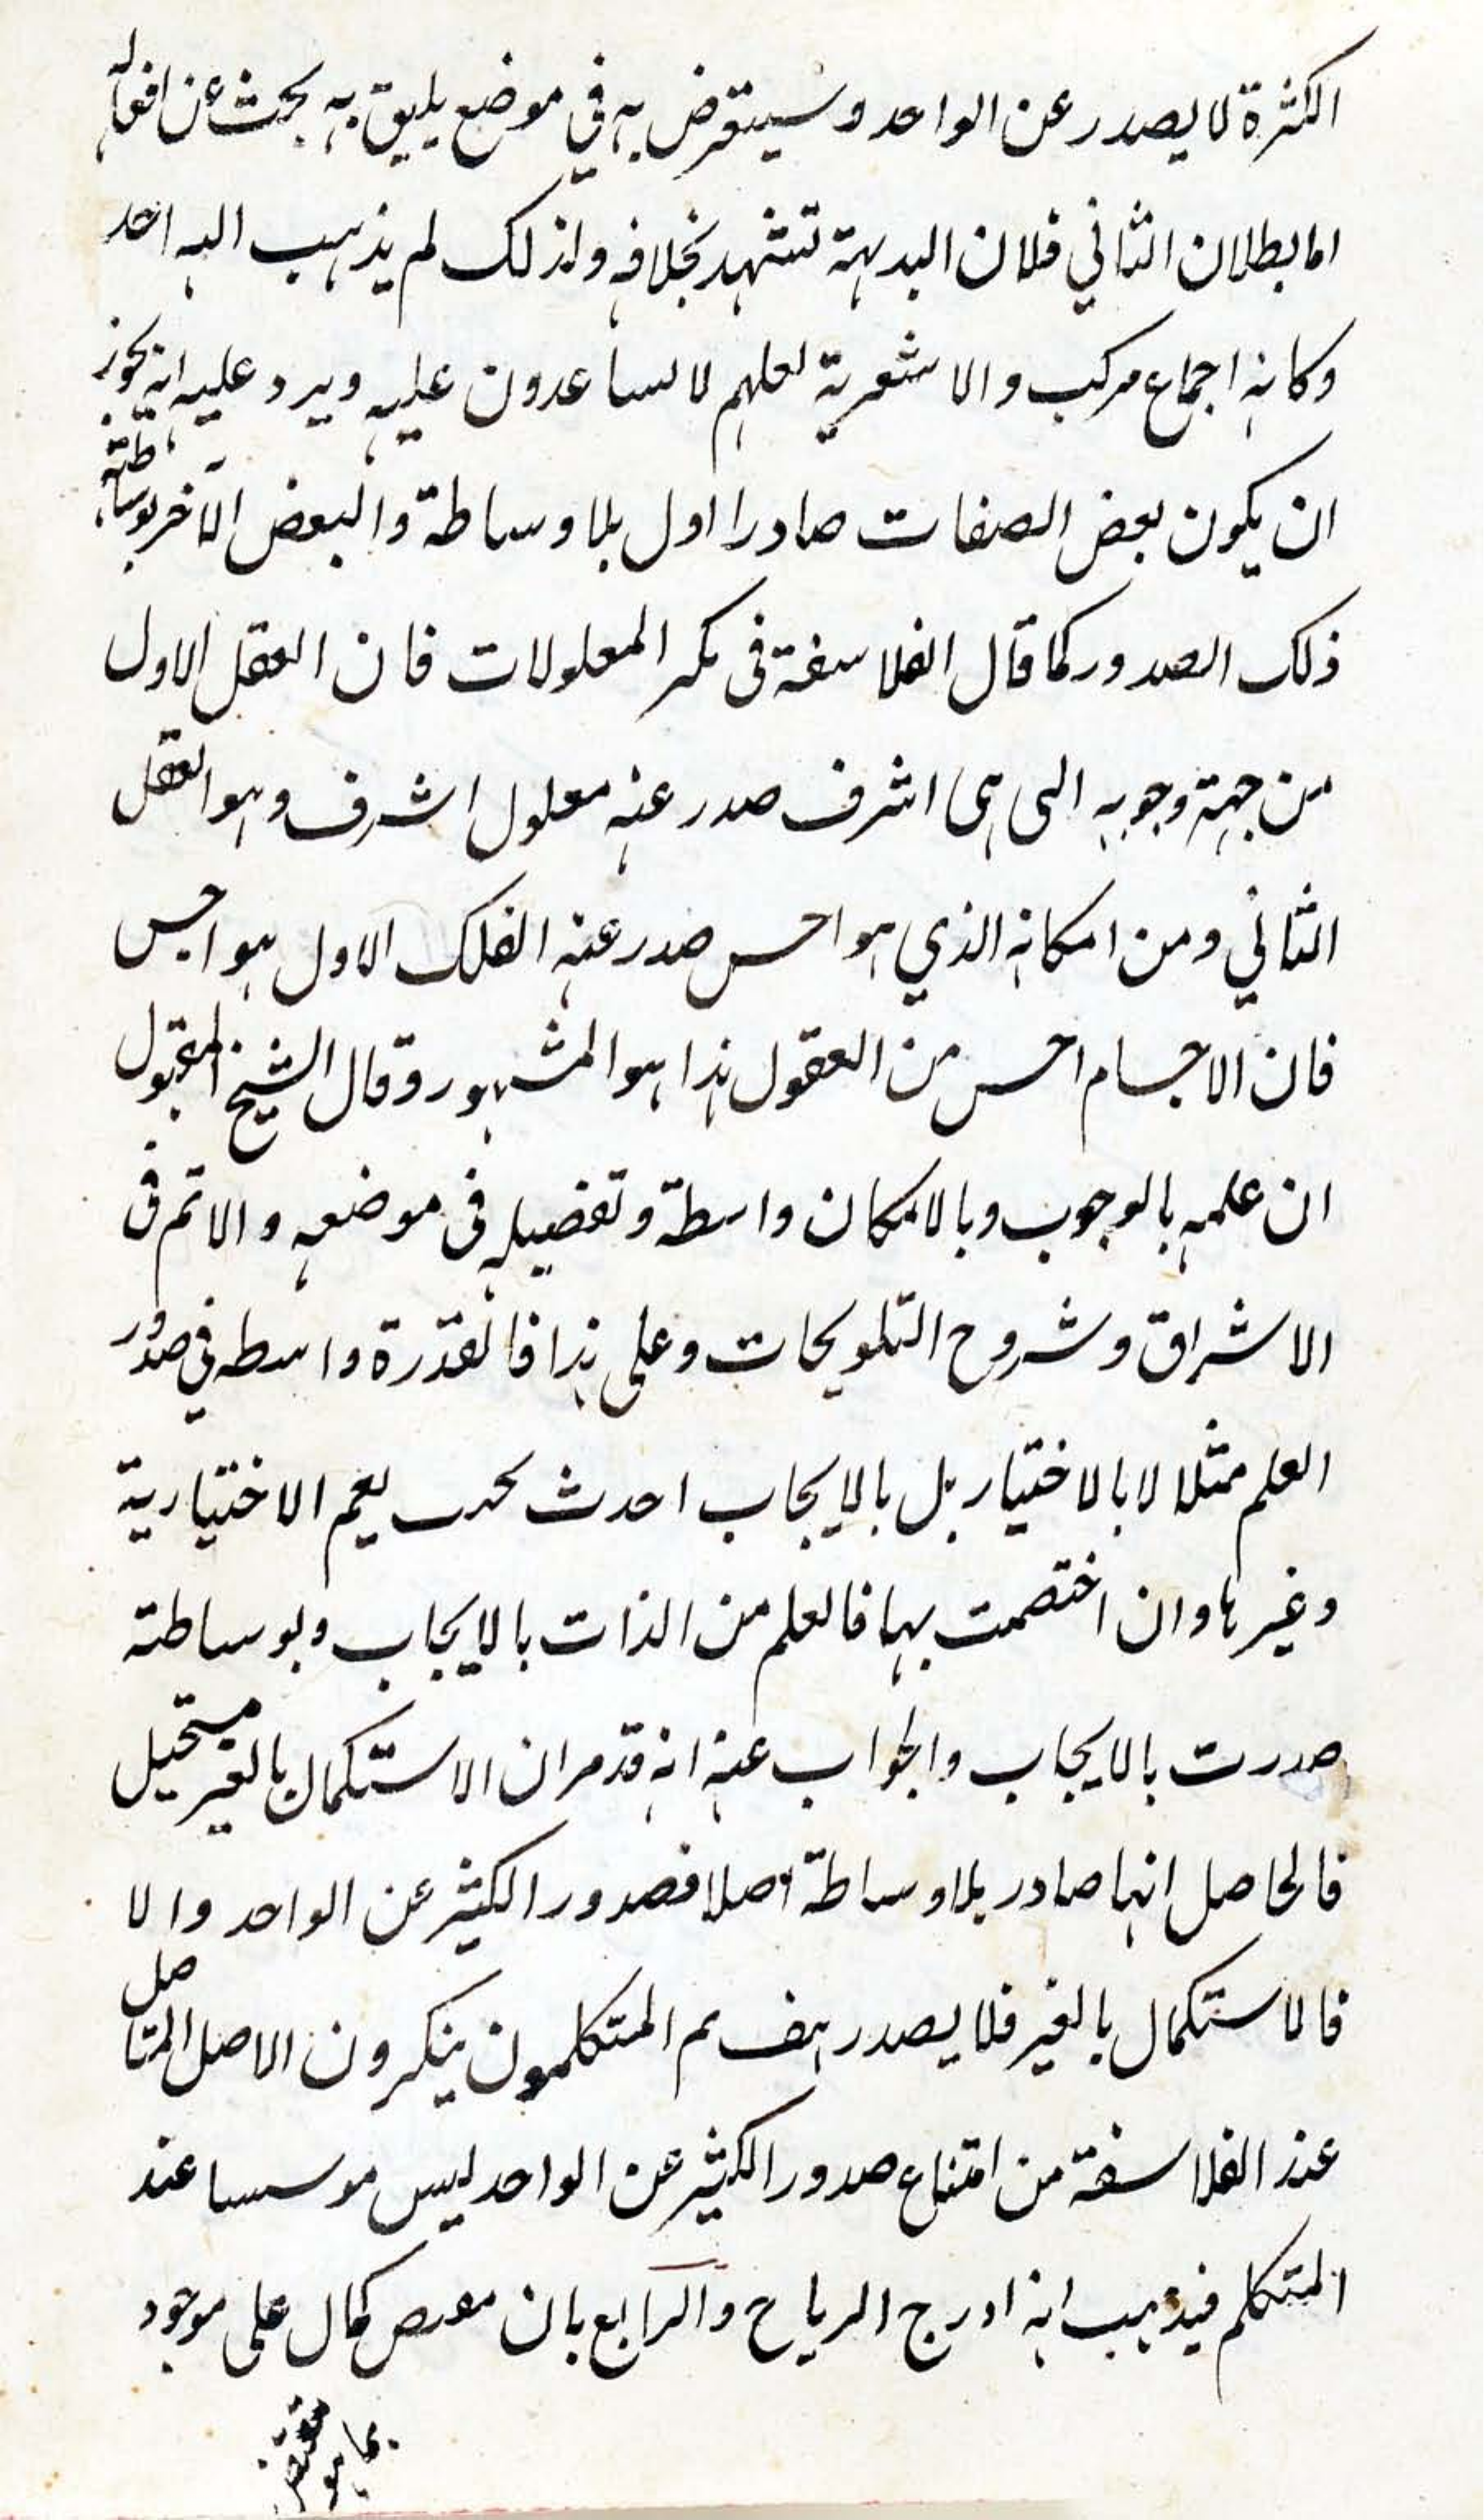 الكثرة لا يصدر عن الواحد وسيتعرض به في موضع يليق به بحث عن افعاله
اما بطلان الثاني فلان البديهة تشهد بخلافه ولذلك لم يذهب اليه احد
وكانه اجماع مركب والاشعرية لعلهم لا يساعدون عليه ويرد عليه انه يجوز
ان يكون بعض الصفات صادرا اول بلا وساطة والبعض الآخر بوساطته
ذلك الصدور كما قال الفلاسفة فى تكثر المعلولات فان العقل الاول
من جهة وجوبه التى هى اشرف صدر عنه معلول اشرف وهو العقل
الثاني ومن امكانه الذي هو اخس صدر عنه الفلك الاول هو اخس
فان الاجسام اخس من العقول هذا هو المشهور وقال الشيخ المقتول
ان علمه بالوجوب وبالامكان واسطة وتفصيله فى موضعه والاتم فى
الاشراق وشروح التلويحات وعلى هذا فالقدرة واسطه في صدور
العلم مثلا لا بالاختيار بل بالايجاب احدث يعم الاختيارية
وغيرها وان اختصت بها فالعلم من الذات بالايجاب وبوساطته
صدرت بالايجاب والجواب عنه انه قد مر ان الاستكمال بالغير مستحيل
فالحاصل انها صادر بلا وساطة اصلا فصدور الكثير عن الواحد والا
فالاستكمال بالغير فلا يصدر هف ثم المتكلمون ينكرون الاصل المتاصل
عند الفلاسفة من امتناع صدور الكثير عن الواحد ليس موسسا عند
المتكلم فيذهب انه ادرج الرياح والرابع بان كمال على موجود
بما هو